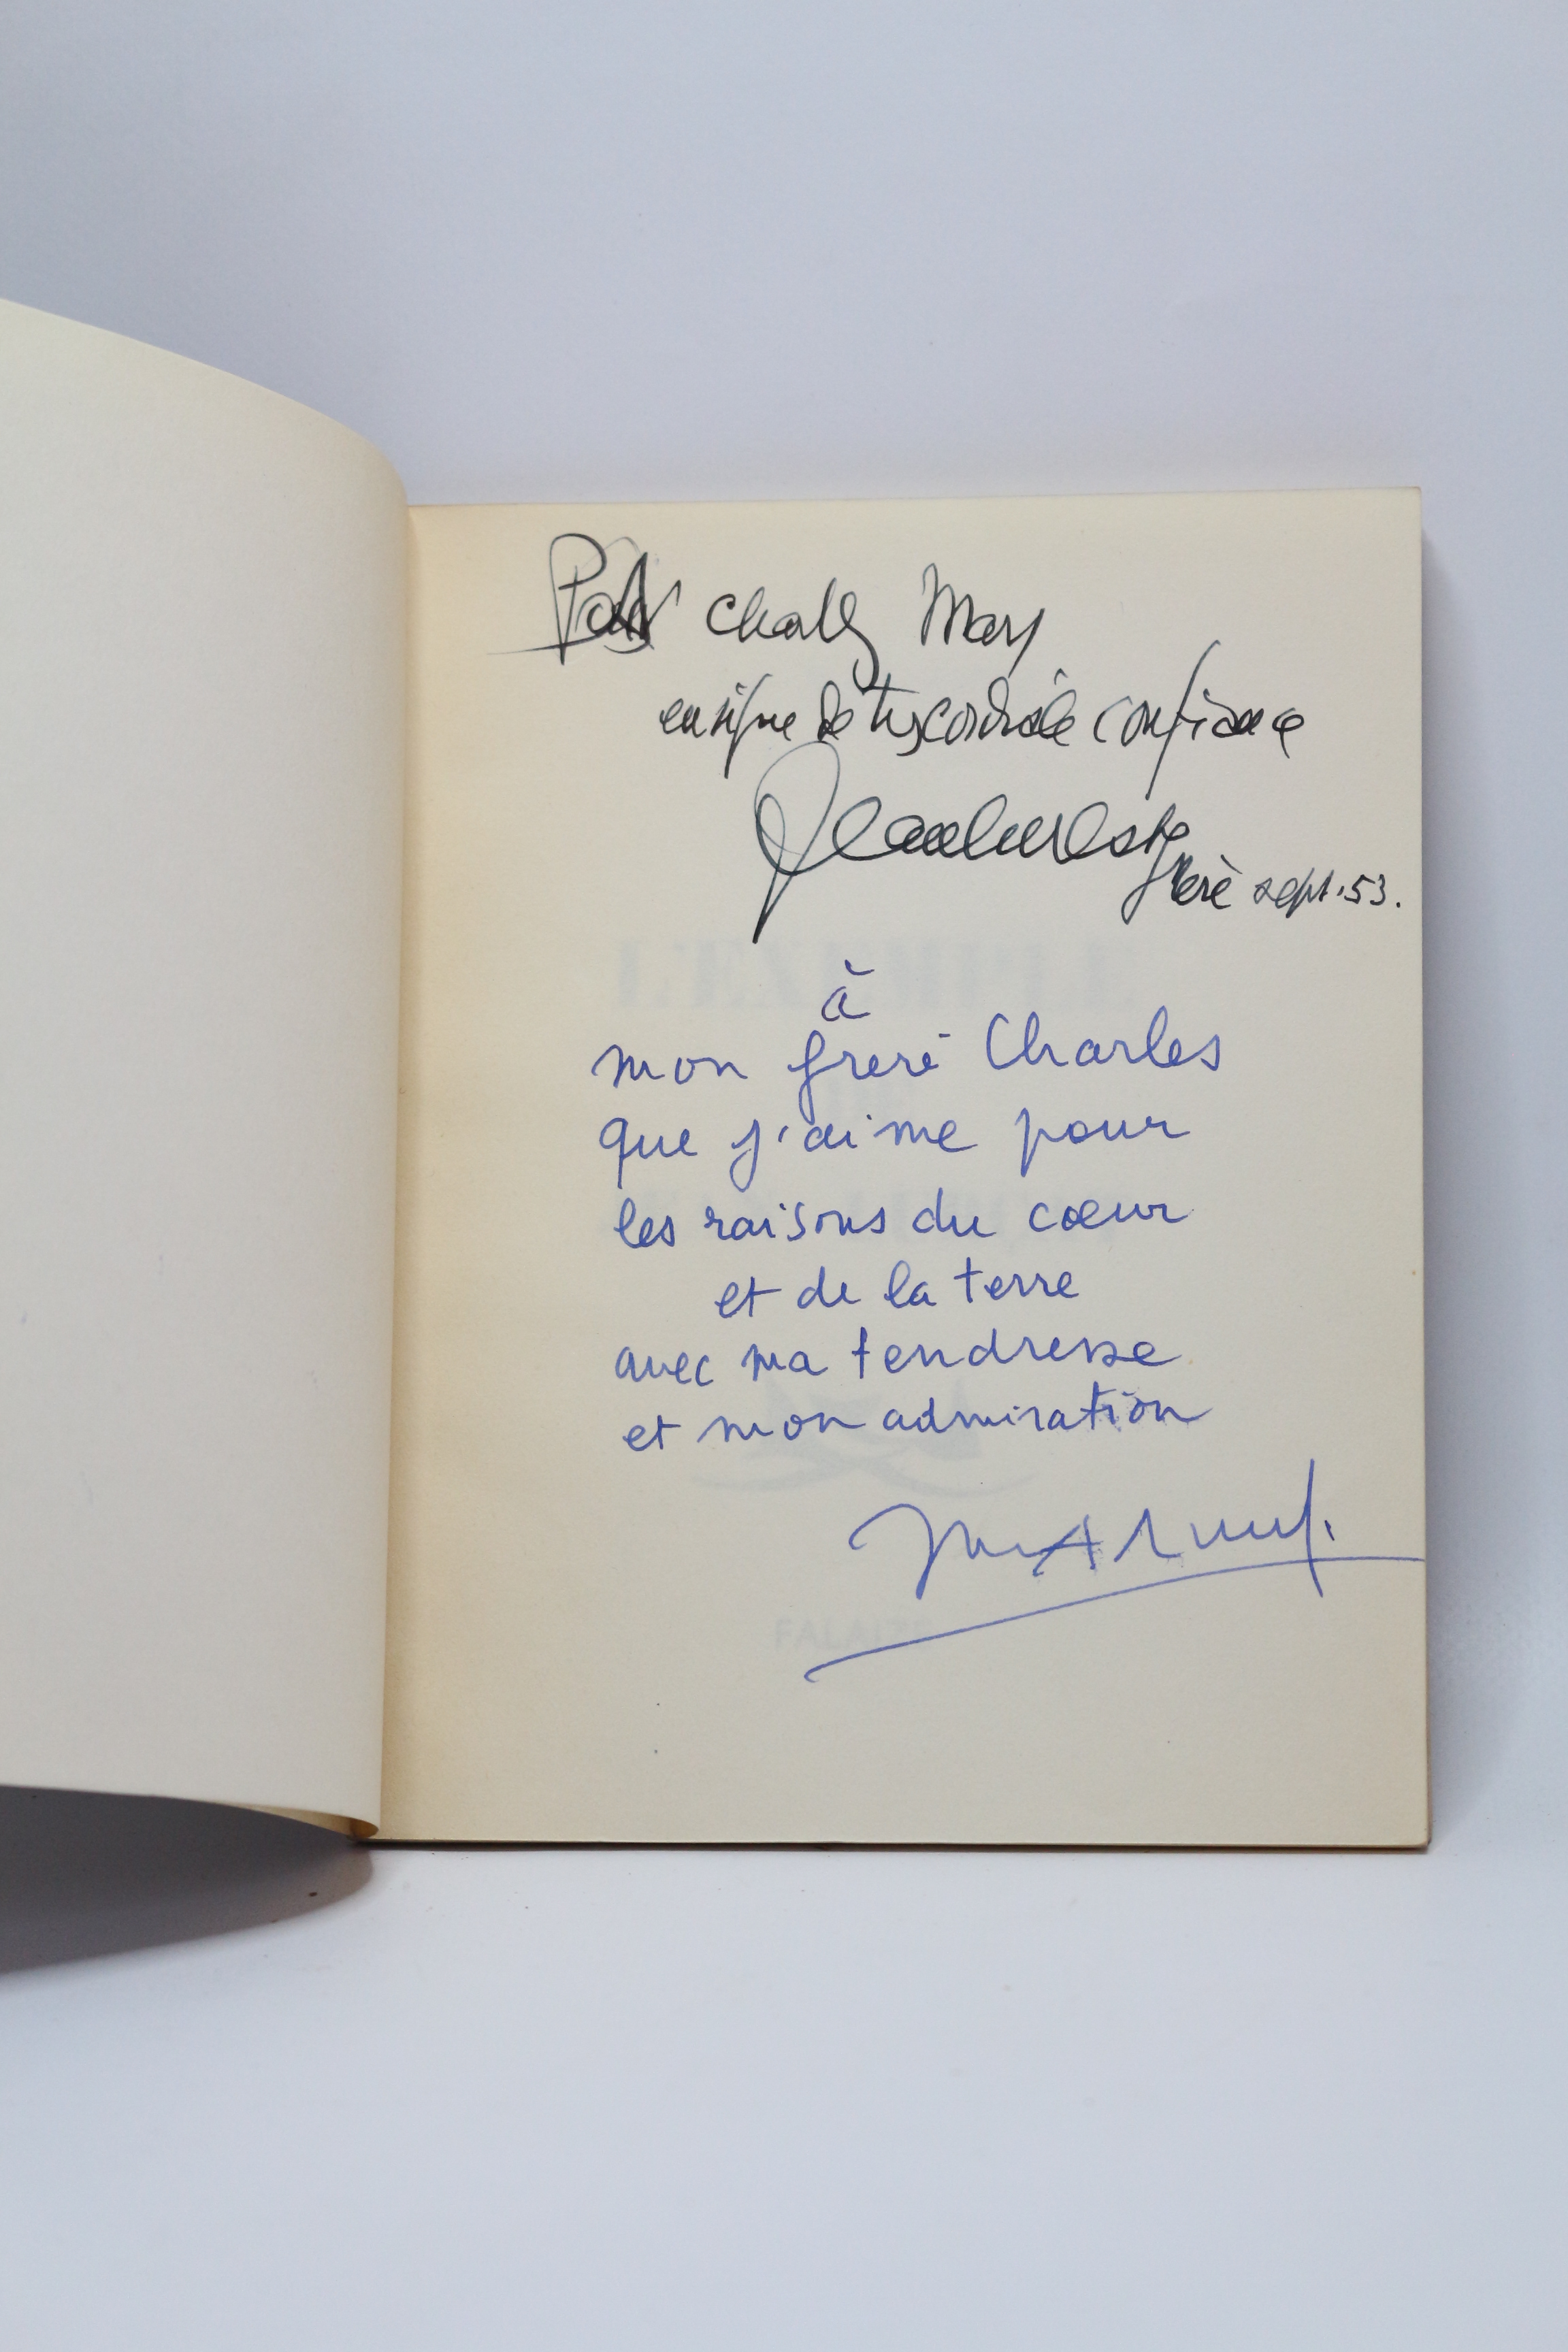 Pour
en signe de très cordiale confiance
Jean Lurçat
sept. 53.
à
mon frère Charles
que j'aime pour
les raisons du cœur
et de la terre
avec ma tendresse
et mon admiration
FALAIZE